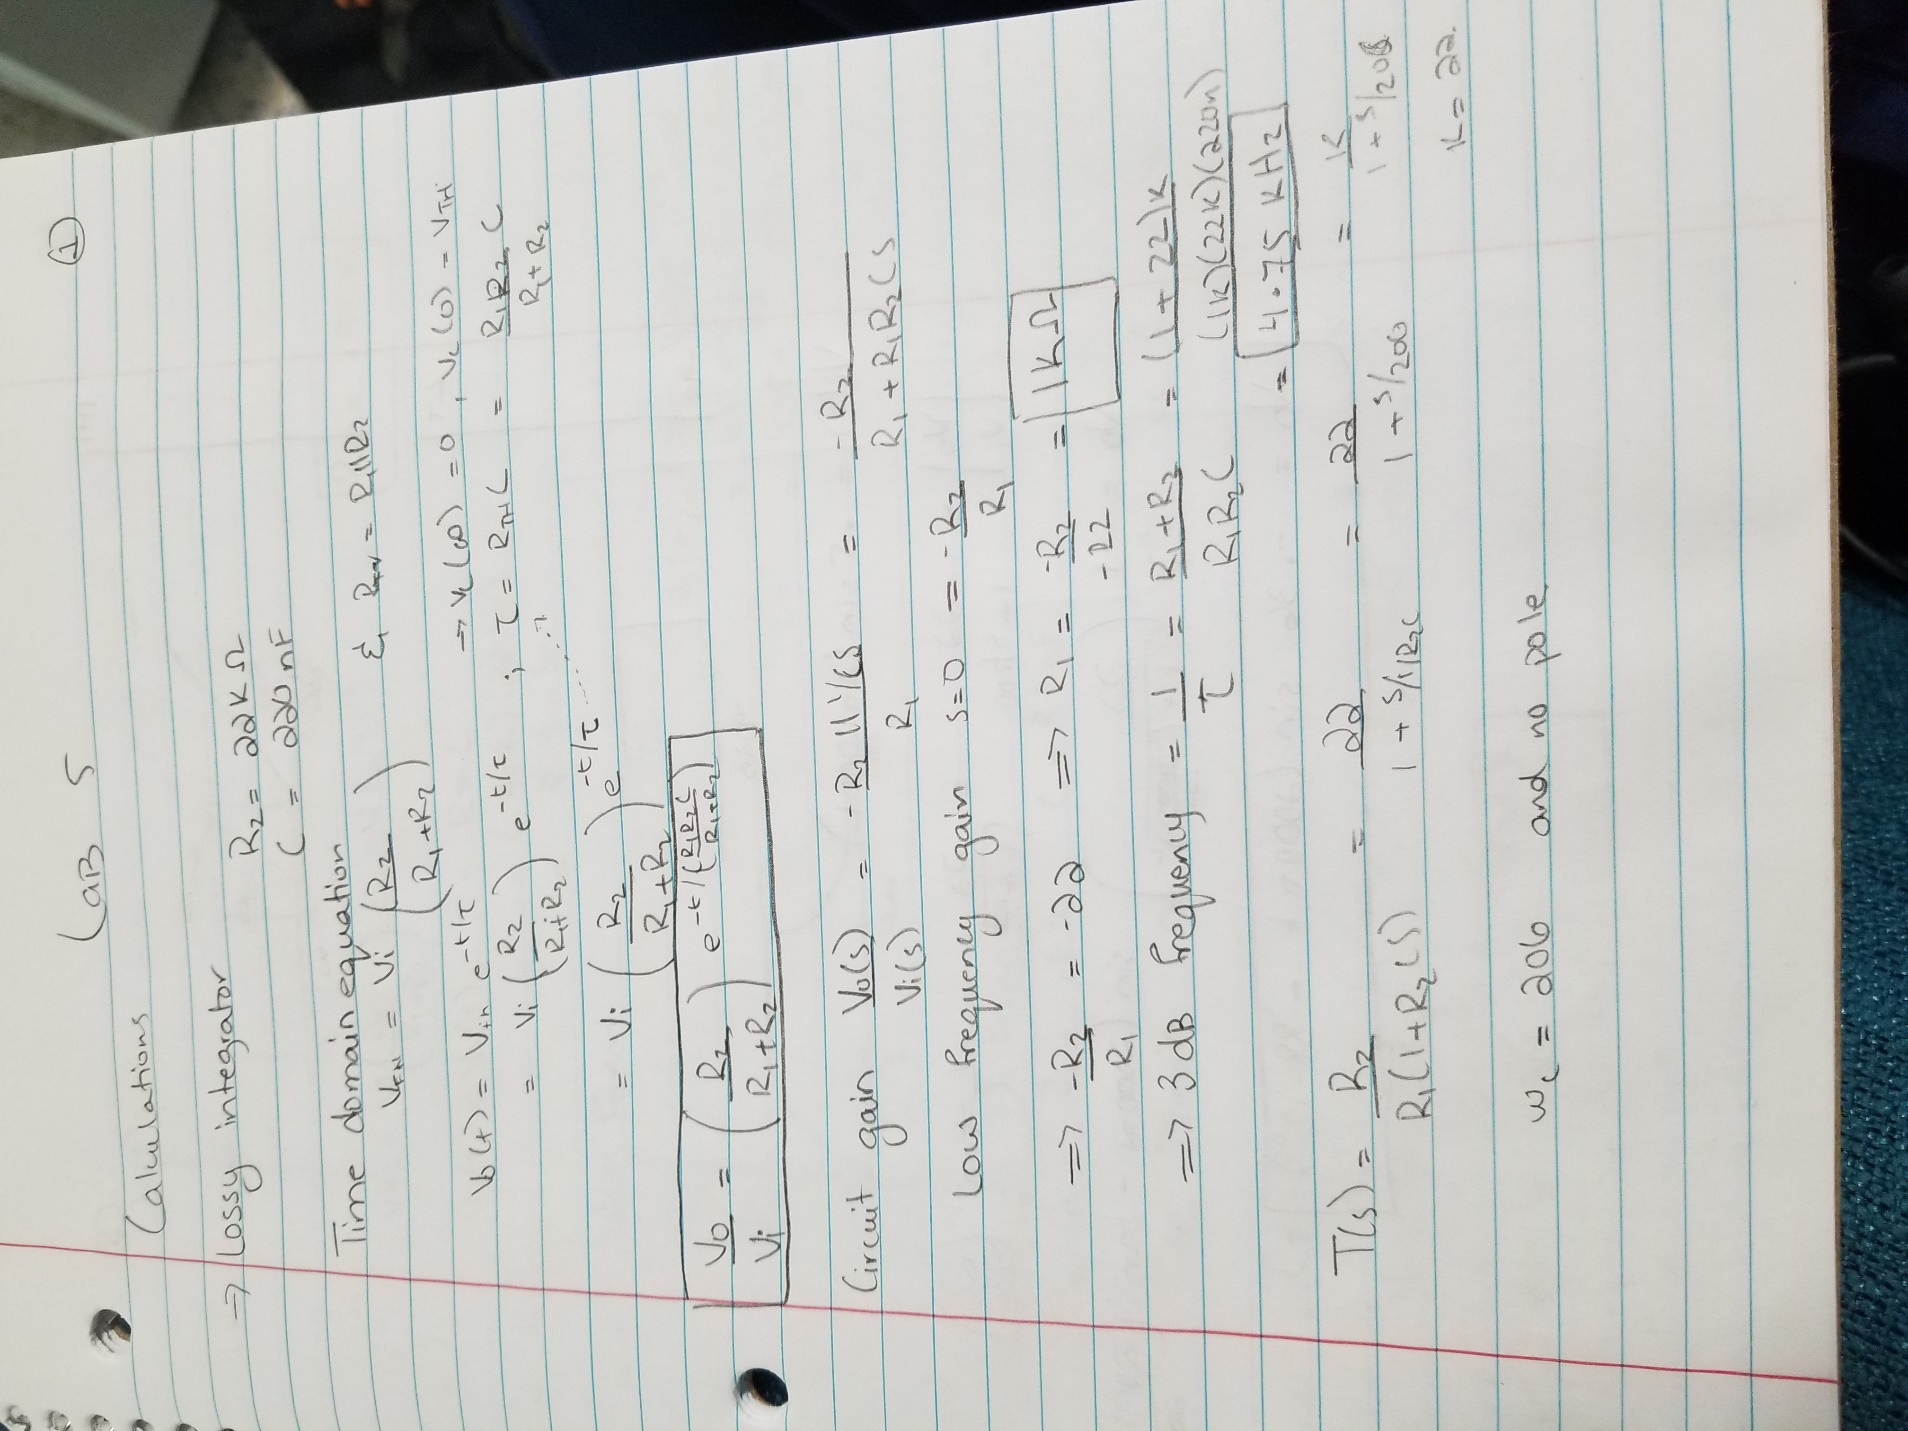 ①
LaB 5
Calculations
⇒ Lossy integrator R₂ = 22KΩ
C = 220 nF
Time domain equation
V_TH = Vi (R₂/(R₁+R₂)) & R_TH = R₁||R₂
Vo(t) = V_TH e^(-t/τ) → Vc(∞) = 0 , Vc(0) = V_TH
= Vi (R₂/(R₁+R₂)) e^(-t/τ) ; τ = R_TH C = R₁R₂C/(R₁+R₂)
= Vi (R₂/(R₁+R₂)) e^(-t/τ)
Vo/Vi = (R₂/(R₁+R₂)) e^(-t/(R₁R₂C/(R₁+R₂)))
Circuit gain Vo(s)/Vi(s) = -R₂||1/CS / R₁ = -R₂/(R₁+R₁R₂CS)
Low frequency gain s=0 = -R₂/R₁
⇒ -R₂/R₁ = -22 ⇒ R₁ = -R₂/-22 = 1KΩ
⇒ 3dB frequency = 1/τ = (R₁+R₂)/(R₁R₂C) = (1+22)K/((1K)(22K)(220n))
= 4.75 KHz
T(s) = R₂/(R₁(1+R₂CS)) = 22/(1+S/1/R₂C) = 22/(1+S/206) = K/(1+S/206)
K = 22.
ωc = 206 and no pole